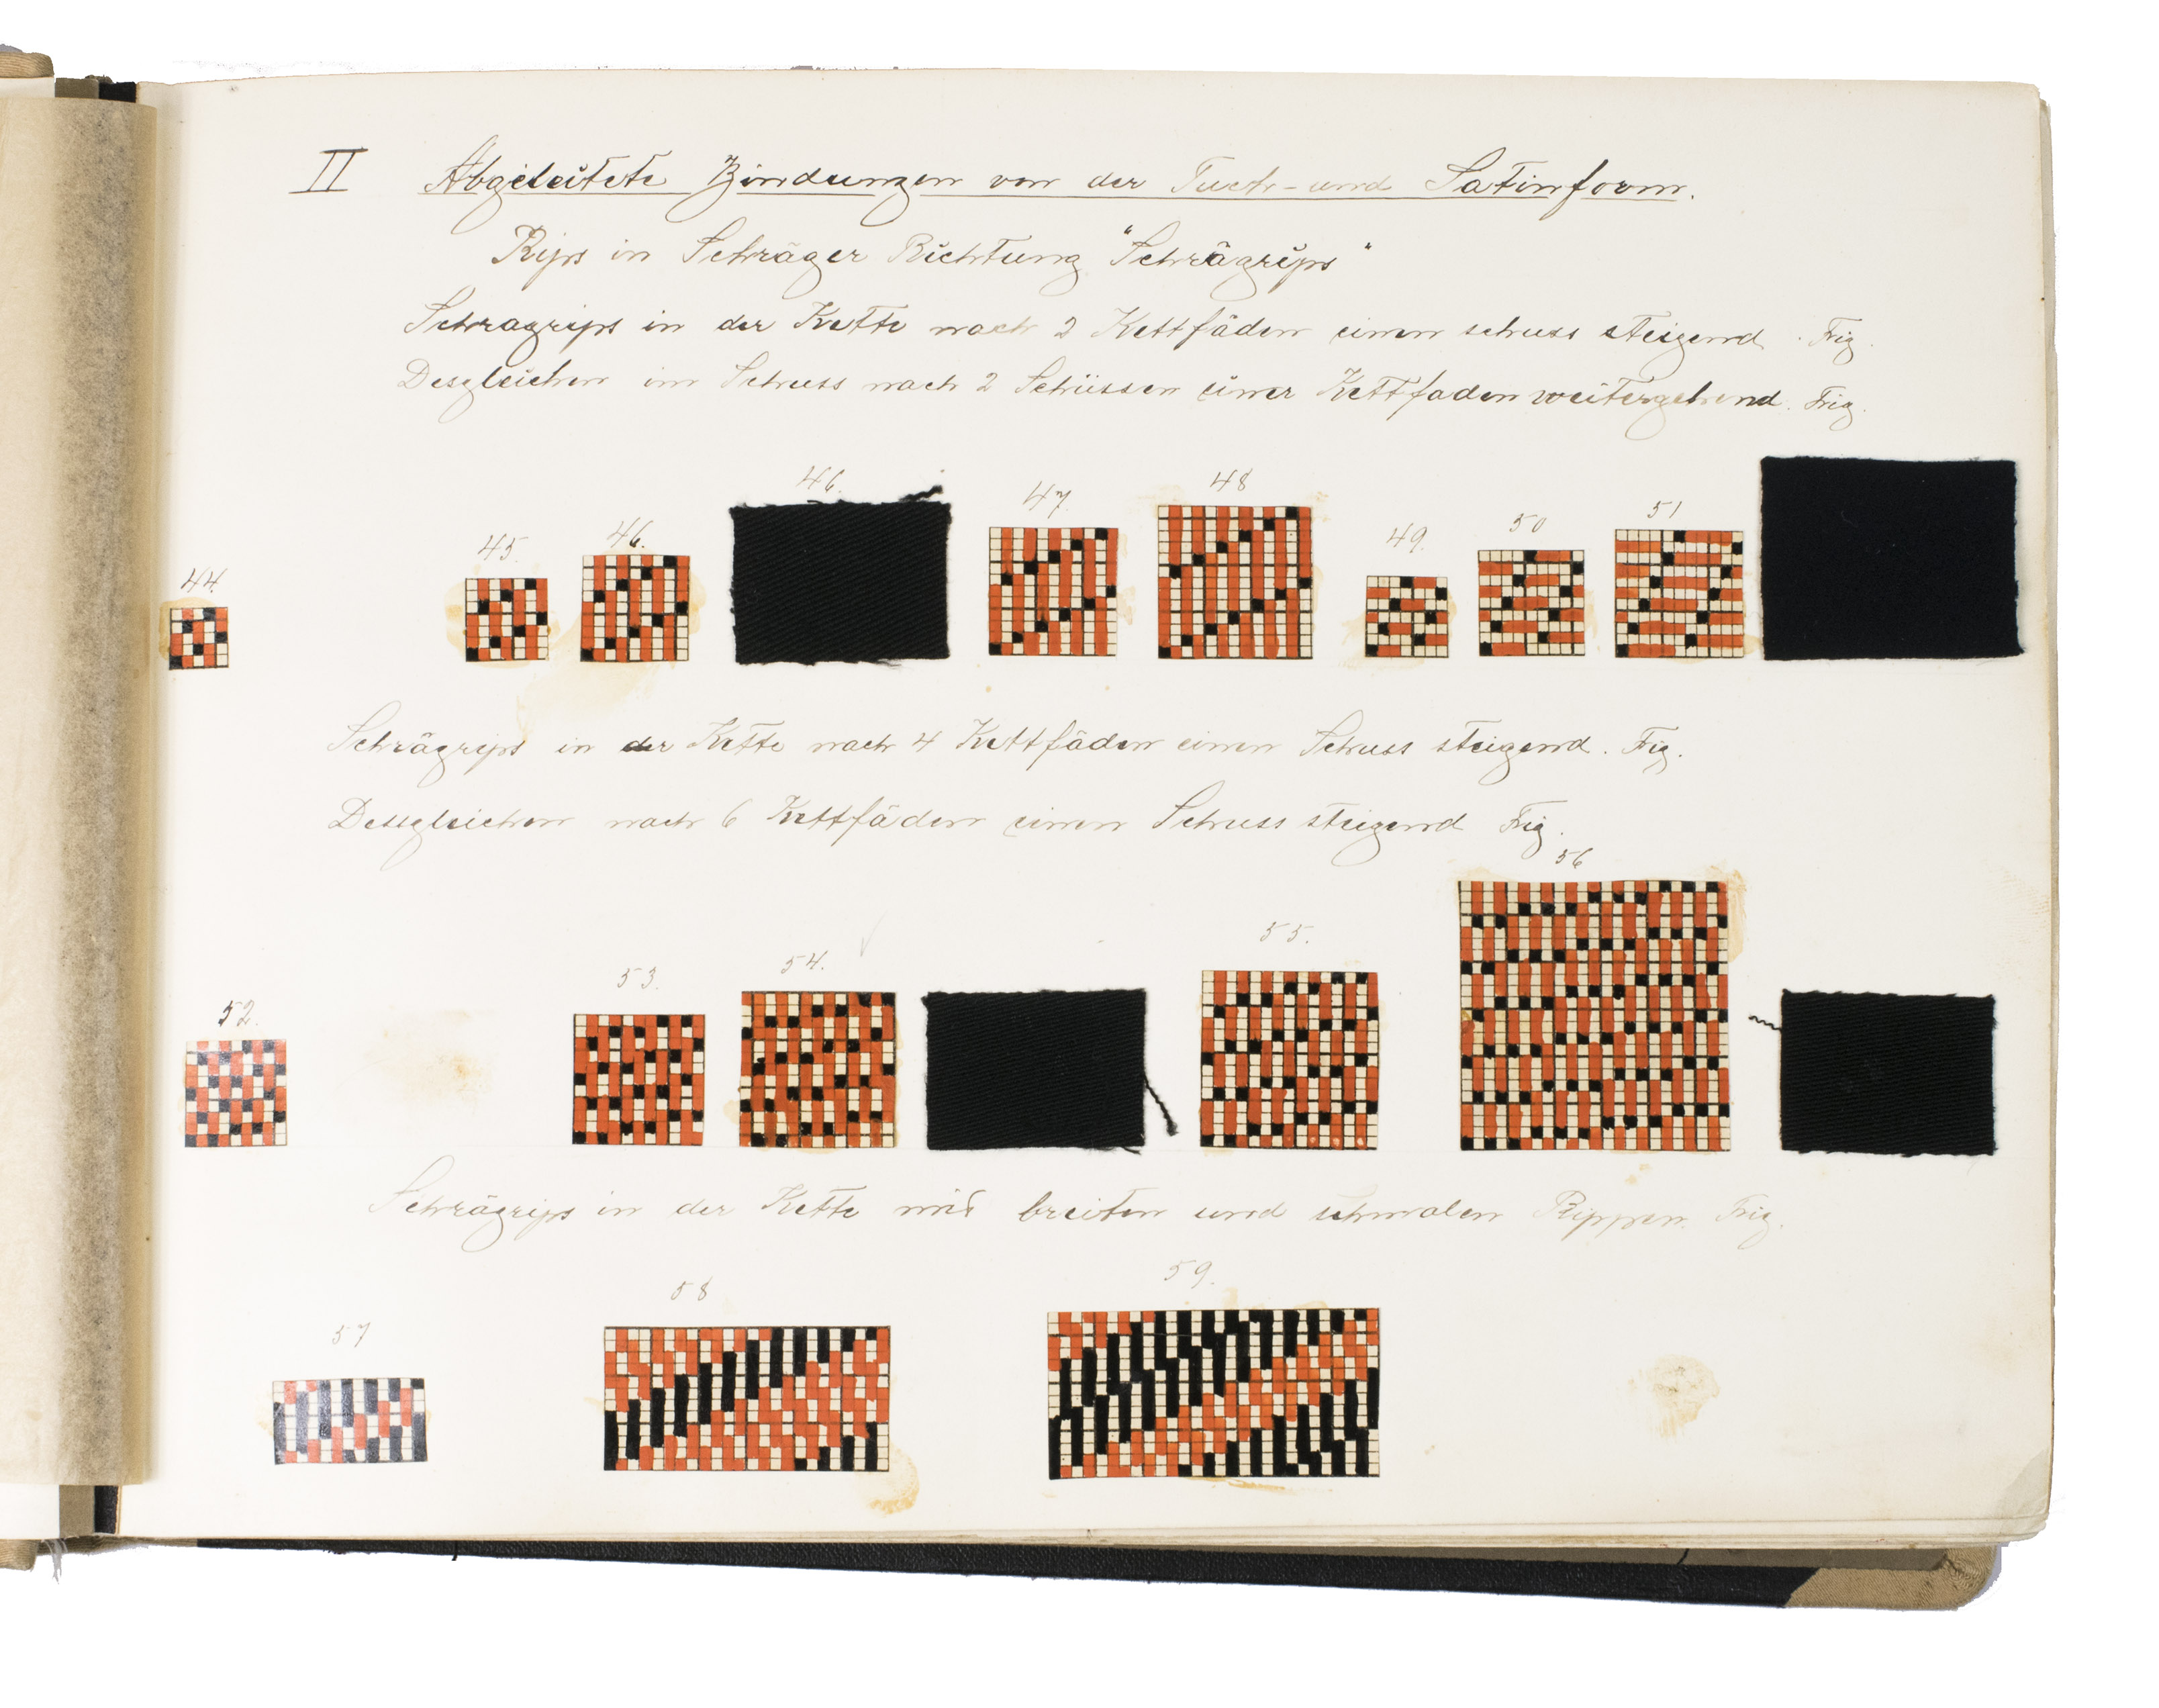 II Abgeleitete Bindungen von der Tuch- und Satinform.
Rips in Schräger Richtung "Schrägrips"
Schragrips in der Kette nach 2 Kettfäden einen schuss steigend. Fig.
Desgleichen im Schuss nach 2 Schüssen einer Kettfaden weitergehend. Fig.
44. 45. 46. 46. 47. 48 49. 50 51
Schrägrips in der Kette nach 4 Kettfäden einen Schuss steigend. Fig.
Desgleichen nach 6 Kettfäden einen Schuss steigend Fig.
52. 53. 54. 55. 56
Schrägrips in der Kette mit breiten und schmalen Rippen. Fig.
57 58 59.